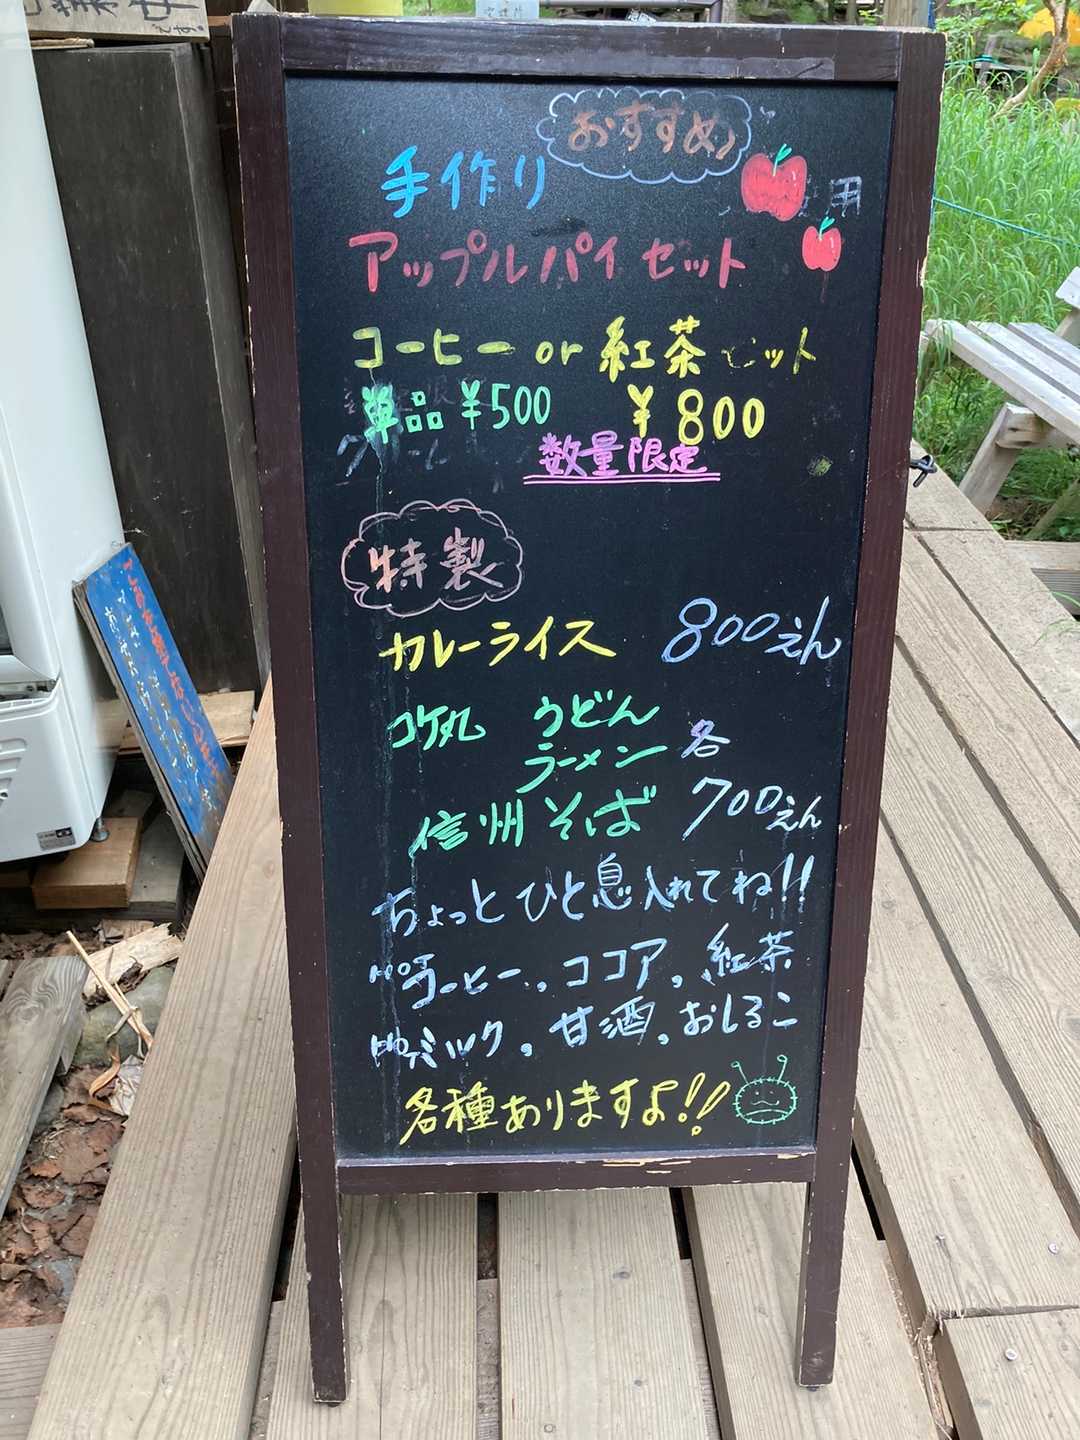 おすすめ
手作り
用
アップルパイセット
コーヒー or 紅茶 セット
単品 ¥500 ¥800
数量限定
特製
カレーライス 800えん
コケ丸 うどん
ラーメン 各
信州そば 700えん
ちょっとひと息入れてね!!
HOTコーヒー、ココア、紅茶
HOTミルク、甘酒、おしるこ
各種ありますよ!!